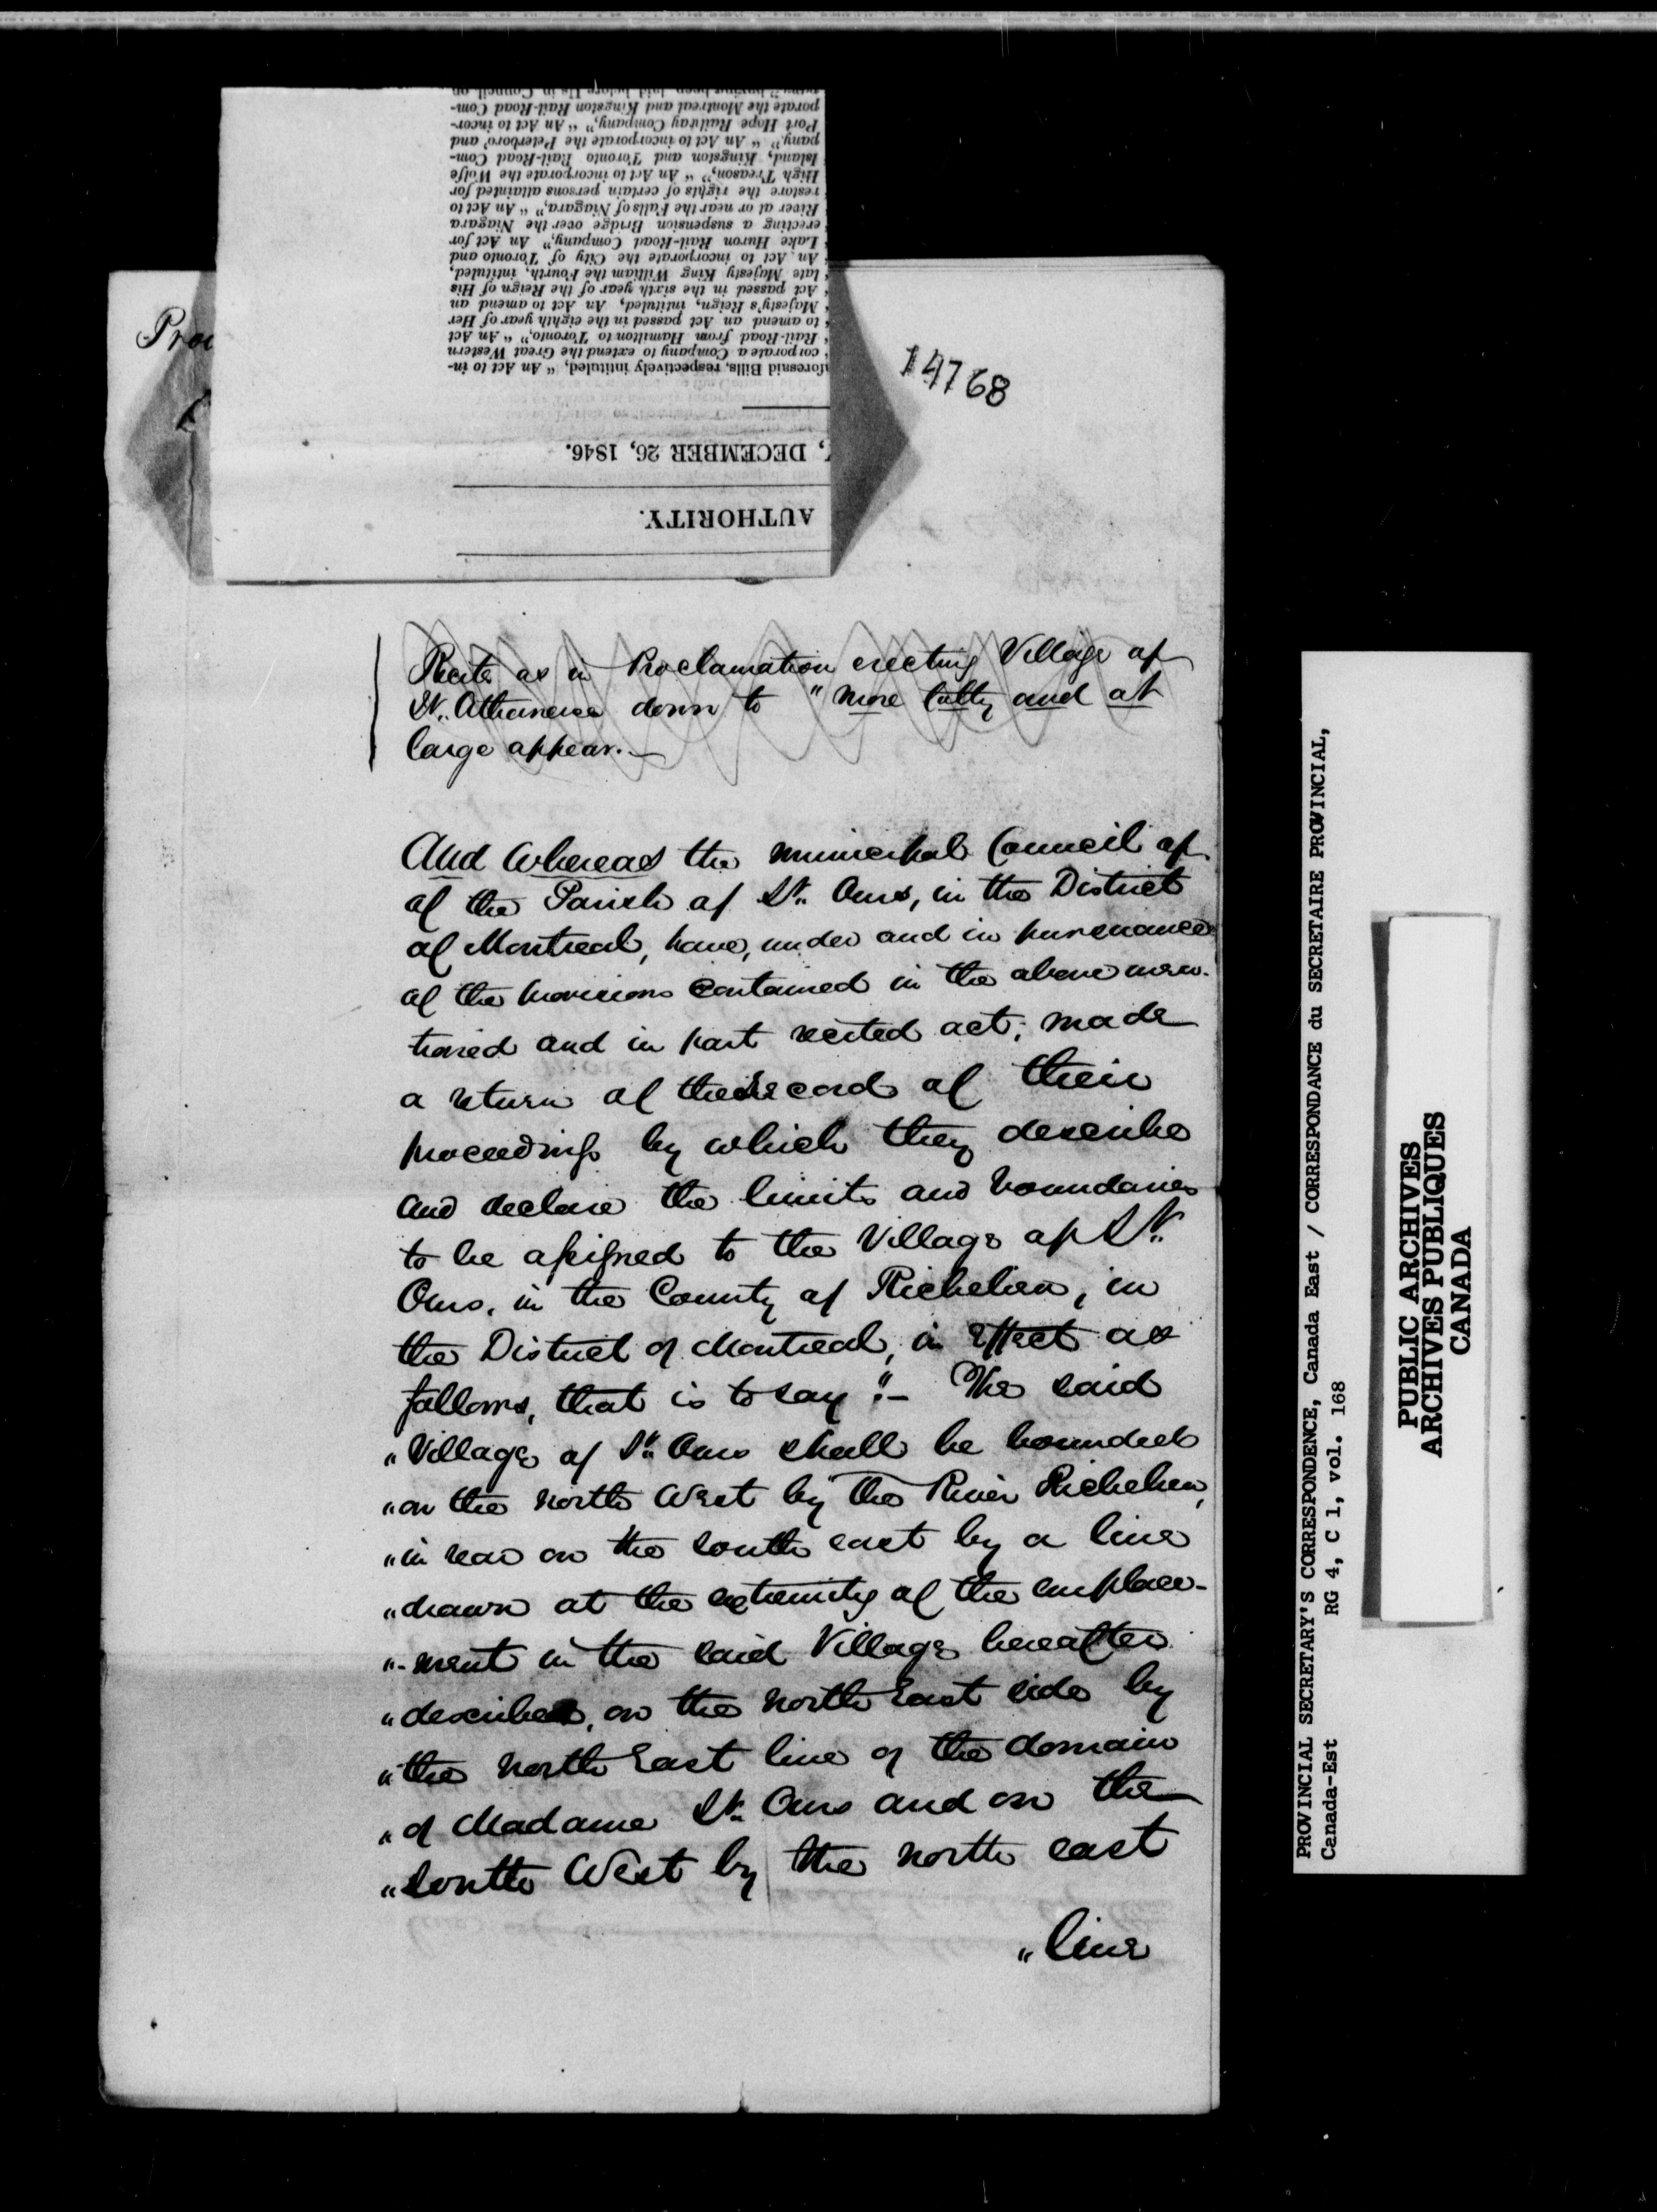 14768
Proc
AUTHORITY.
, DECEMBER 26, 1846.
aforesaid Bills, respectively intituled, “An Act to in-
corporate a Company to extend the Great Western
Rail-Road from Hamilton to Toronto,” “An Act
to amend an Act passed in the eighth year of Her
Majesty's Reign, intituled, An Act to amend an
Act passed in the sixth year of the Reign of His
late Majesty King William the Fourth, intituled,
An Act to incorporate the City of Toronto and
Lake Huron Rail-Road Company,” An Act for
erecting a suspension Bridge over the Niagara
River at or near the Falls of Niagara,” “An Act to
restore the rights of certain persons attainted for
High Treason,” “An Act to incorporate the Wolfe
Island, Kingston and Toronto Rail-Road Com-
pany,” “An Act to incorporate the Peterboro' and
Port Hope Railway Company,” “An Act to incor-
porate the Montreal and Kingston Rail-Road Com-
having been laid before Us in Council on
Recite as in Proclamation erecting Village of
St. Athanase down to "more fully and at
large appear.—
And Whereas the municipal Council of
of the Parish of St. Ours, in the District
of Montreal, have, under and in pursuance
of the provisions contained in the above men-
tioned and in part recited act, made
a return of the Record of their
proceedings by which they describe
and declare the limits and boundaries
to be assigned to the Village of St.
Ours, in the County of Richelieu, in
the District of Montreal, in effect as
follows, that is to say "- The said
"Village of St. Ours shall be bounded
"on the north West by the River Richelieu,
"in rear on the south east by a line
"drawn at the extremity of the emplace-
"-ment in the said Village hereafter
"described, on the north East side by
"the north East line of the domain
"of Madame St. Ours and on the
"South West by the north east
"line
PROVINCIAL SECRETARY'S CORRESPONDENCE, Canada East / CORRESPONDANCE du SECRETAIRE PROVINCIAL,
Canada-Est RG 4, C 1, vol. 168
PUBLIC ARCHIVES
ARCHIVES PUBLIQUES
CANADA